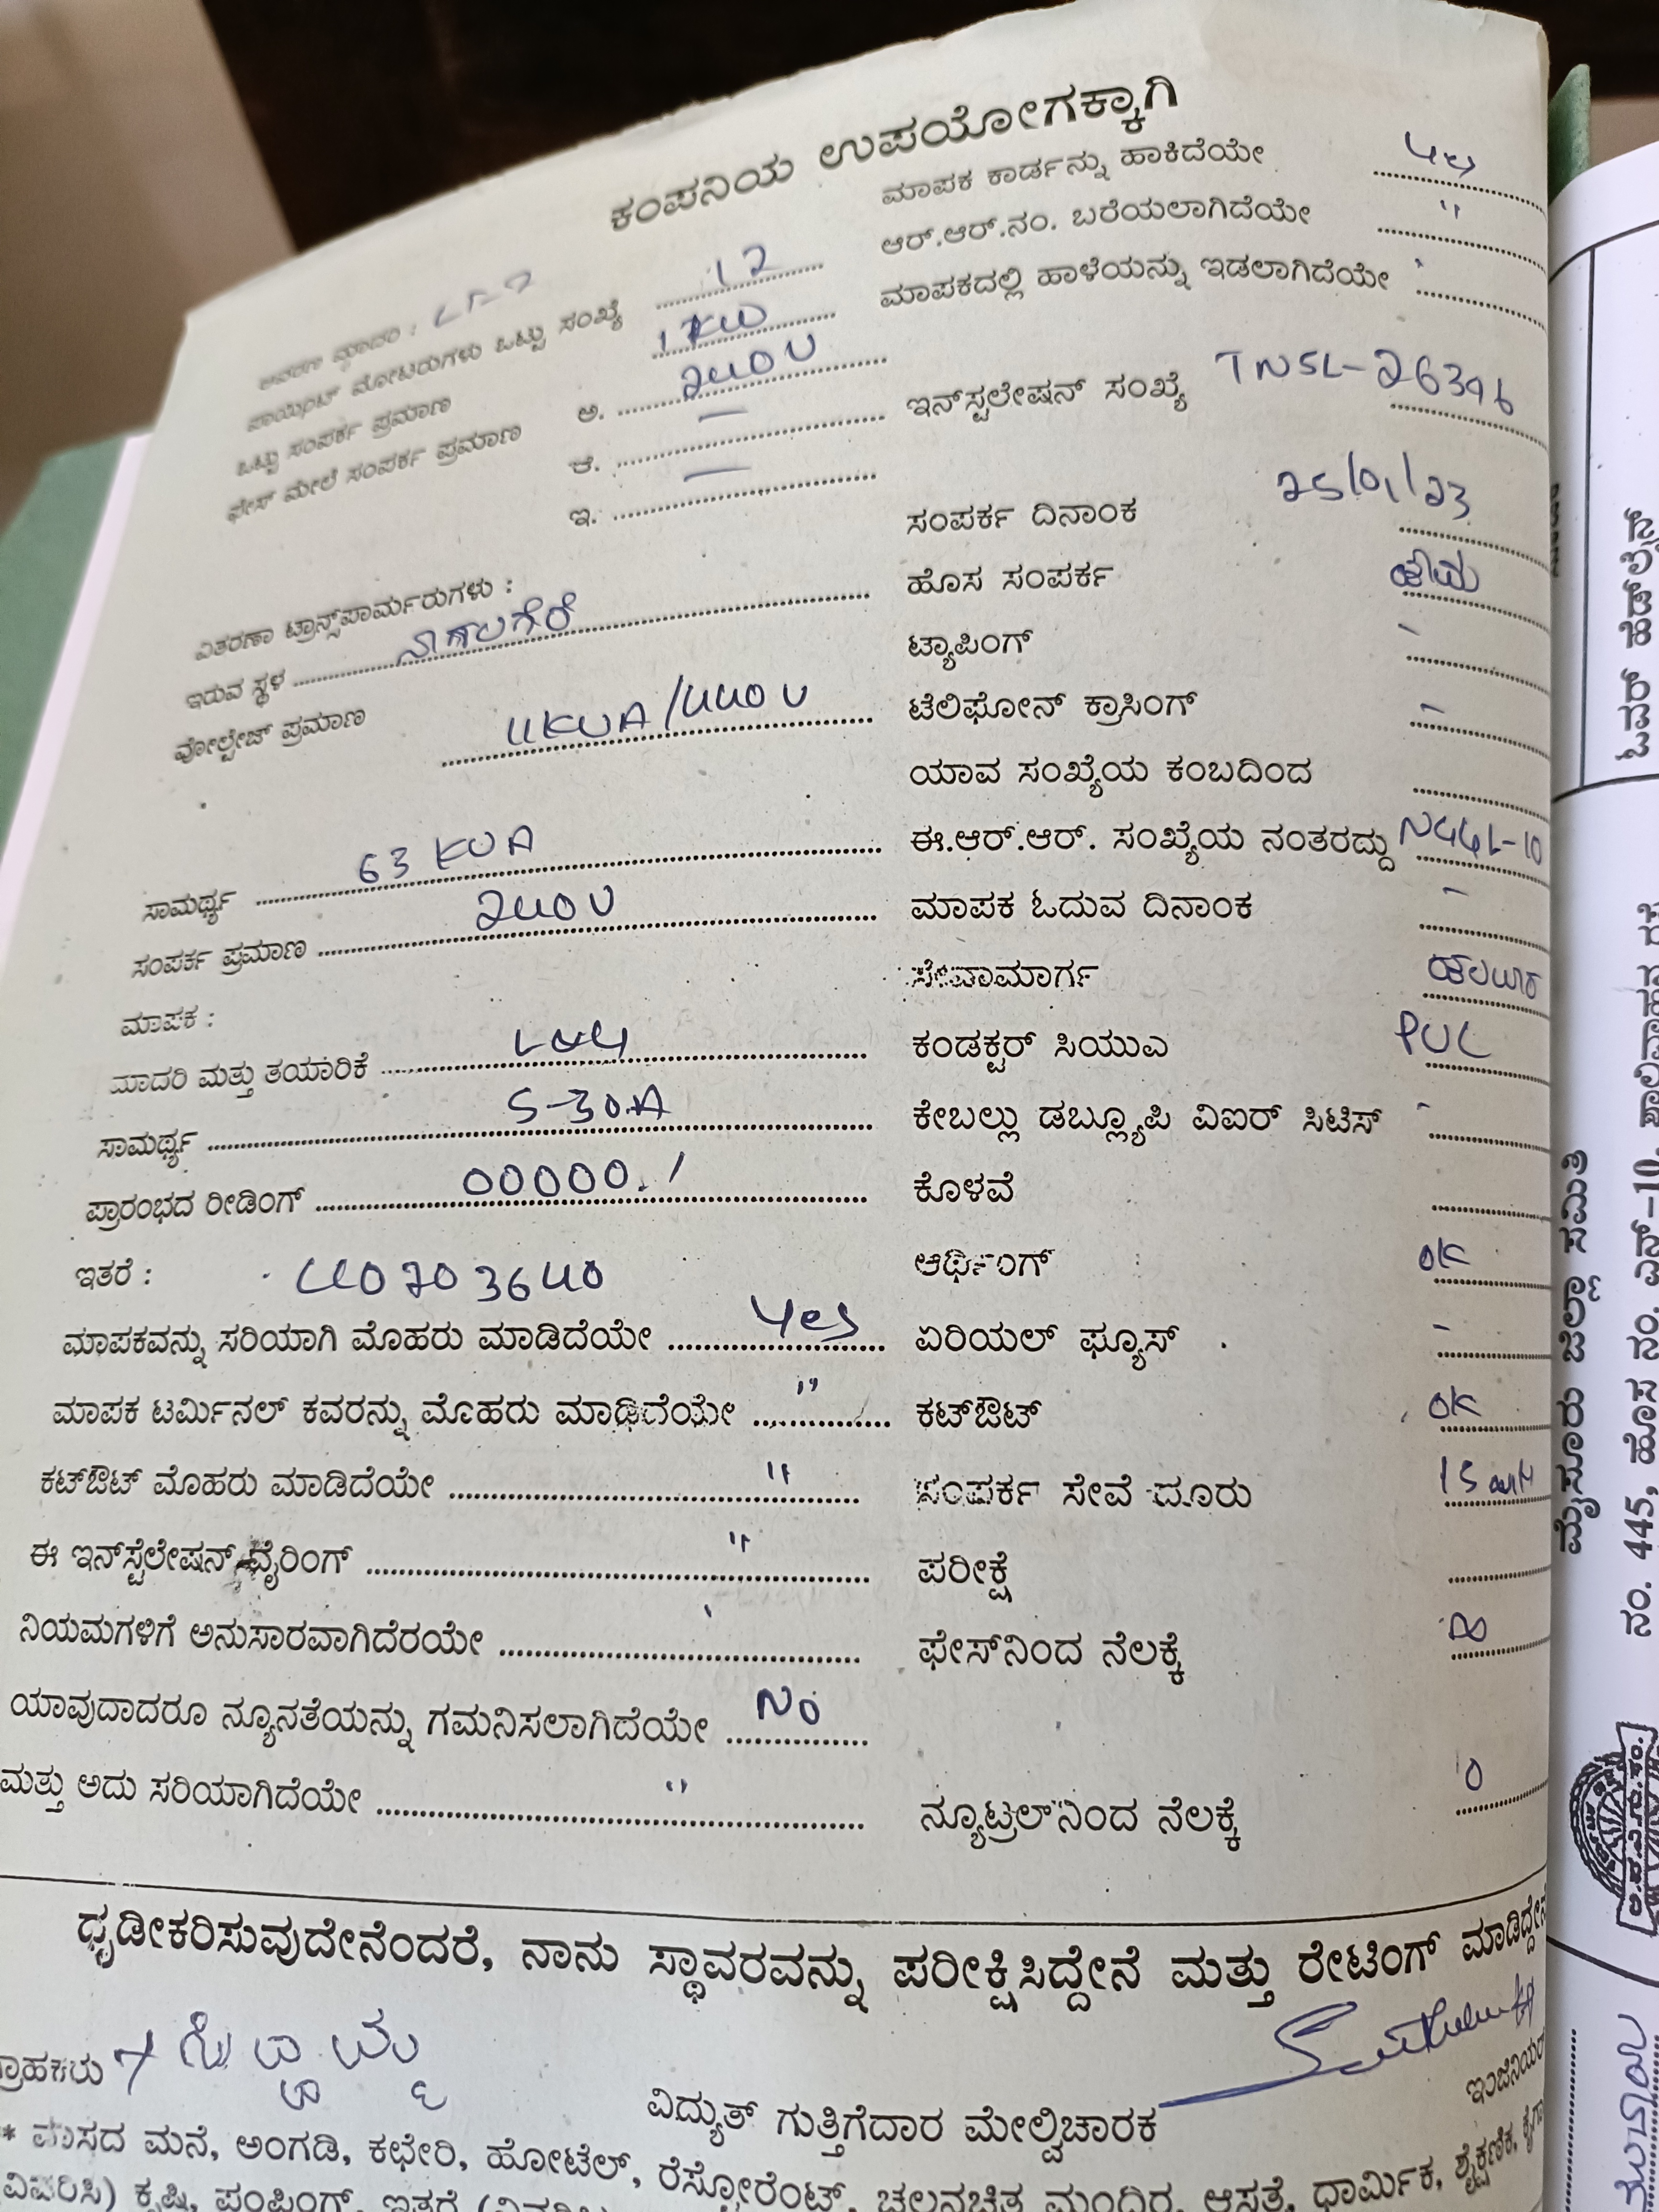 ಕಂಪನಿಯ ಉಪಯೋಗಕ್ಕಾಗಿ
ಪಾಯಿಂಟ್ ಮೋಟರುಗಳು ಒಟ್ಟು ಸಂಖ್ಯೆ 12
ಒಟ್ಟು ಸಂಪರ್ಕ ಪ್ರಮಾಣ 1 KW
ಫೇಸ್ ಮೇಲೆ ಸಂಪರ್ಕ ಪ್ರಮಾಣ ಅ. 240 V
ಆ. —
ಇ. —
ವಿತರಣಾ ಟ್ರಾನ್ಸ್‌ಪಾರ್ಮರುಗಳು :
ಇರುವ ಸ್ಥಳ
ವೋಲ್ಟೇಜ್ ಪ್ರಮಾಣ 11KVA/440 V
ಸಾಮರ್ಥ್ಯ 63 KVA
ಸಂಪರ್ಕ ಪ್ರಮಾಣ 240 V
ಮಾಪಕ :
ಮಾದರಿ ಮತ್ತು ತಯಾರಿಕೆ
ಸಾಮರ್ಥ್ಯ 5-30A
ಪ್ರಾರಂಭದ ರೀಡಿಂಗ್ 00000.1
ಇತರೆ : 40703640
ಮಾಪಕವನ್ನು ಸರಿಯಾಗಿ ಮೊಹರು ಮಾಡಿದೆಯೇ Yes
ಮಾಪಕ ಟರ್ಮಿನಲ್ ಕವರನ್ನು ಮೊಹರು ಮಾಡಿದೆಯೇ "
ಕಟ್‌ಔಟ್ ಮೊಹರು ಮಾಡಿದೆಯೇ "
ಈ ಇನ್‌ಸ್ಟೆಲೇಷನ್ ವೈರಿಂಗ್ "
ನಿಯಮಗಳಿಗೆ ಅನುಸಾರವಾಗಿದೆರಯೇ
ಯಾವುದಾದರೂ ನ್ಯೂನತೆಯನ್ನು ಗಮನಿಸಲಾಗಿದೆಯೇ No
ಮತ್ತು ಅದು ಸರಿಯಾಗಿದೆಯೇ "
ಮಾಪಕ ಕಾರ್ಡನ್ನು ಹಾಕಿದೆಯೇ yes
ಆರ್.ಆರ್.ನಂ. ಬರೆಯಲಾಗಿದೆಯೇ "
ಮಾಪಕದಲ್ಲಿ ಹಾಳೆಯನ್ನು ಇಡಲಾಗಿದೆಯೇ
ಇನ್‌ಸ್ಟಲೇಷನ್ ಸಂಖ್ಯೆ TNSL-26396
ಸಂಪರ್ಕ ದಿನಾಂಕ 25/01/23
ಹೊಸ ಸಂಪರ್ಕ
ಟ್ಯಾಪಿಂಗ್ -
ಟೆಲಿಫೋನ್ ಕ್ರಾಸಿಂಗ್ -
ಯಾವ ಸಂಖ್ಯೆಯ ಕಂಬದಿಂದ
ಈ.ಆರ್.ಆರ್. ಸಂಖ್ಯೆಯ ನಂತರದ್ದು
ಮಾಪಕ ಓದುವ ದಿನಾಂಕ -
ಸೇವಾಮಾರ್ಗ
ಕಂಡಕ್ಟರ್ ಸಿಯುಎ PVC
ಕೇಬಲ್ಲು ಡಬ್ಲ್ಯೂಪಿ ವಿಐರ್ ಸಿಟಿಸ್ -
ಕೊಳವೆ
ಆರ್ಥಿಂಗ್ OK
ಏರಿಯಲ್ ಫ್ಯೂಸ್ -
ಕಟ್‌ಔಟ್ OK
ಸಂಪರ್ಕ ಸೇವೆ ದೂರು 15
ಪರೀಕ್ಷೆ
ಫೇಸ್‌ನಿಂದ ನೆಲಕ್ಕೆ
ನ್ಯೂಟ್ರಲ್‌ನಿಂದ ನೆಲಕ್ಕೆ 0
ಧೃಡೀಕರಿಸುವುದೇನೆಂದರೆ, ನಾನು ಸ್ಥಾವರವನ್ನು ಪರೀಕ್ಷಿಸಿದ್ದೇನೆ ಮತ್ತು ರೇಟಿಂಗ್ ಮಾಡಿದ್ದೇನೆ
ವಿದ್ಯುತ್ ಗುತ್ತಿಗೆದಾರ ಮೇಲ್ವಿಚಾರಕ
ಇಂಜಿನಿಯರ್
* ವಾಸದ ಮನೆ, ಅಂಗಡಿ, ಕಛೇರಿ, ಹೋಟೆಲ್, ರೆಸ್ಟೋರೆಂಟ್, ಚಲನಚಿತ್ರ ಮಂದಿರ, ಆಸ್ಪತ್ರೆ, ಧಾರ್ಮಿಕ, ಶೈಕ್ಷಣಿಕ,
ಕೃಷಿ, ಪಂಪಿಂಗ್, ಇತರೆ
ಓವರ್ ಹೆಡ್‌ಲೈನ್
ಮೈಸೂರು ಜಿಲ್ಲಾ ಸಮಿತಿ
ನಂ. 445, ಹೊಸ ನಂ. ಎನ್-10, ಶಾಲಿವಾಹನ ರಸ್ತೆ